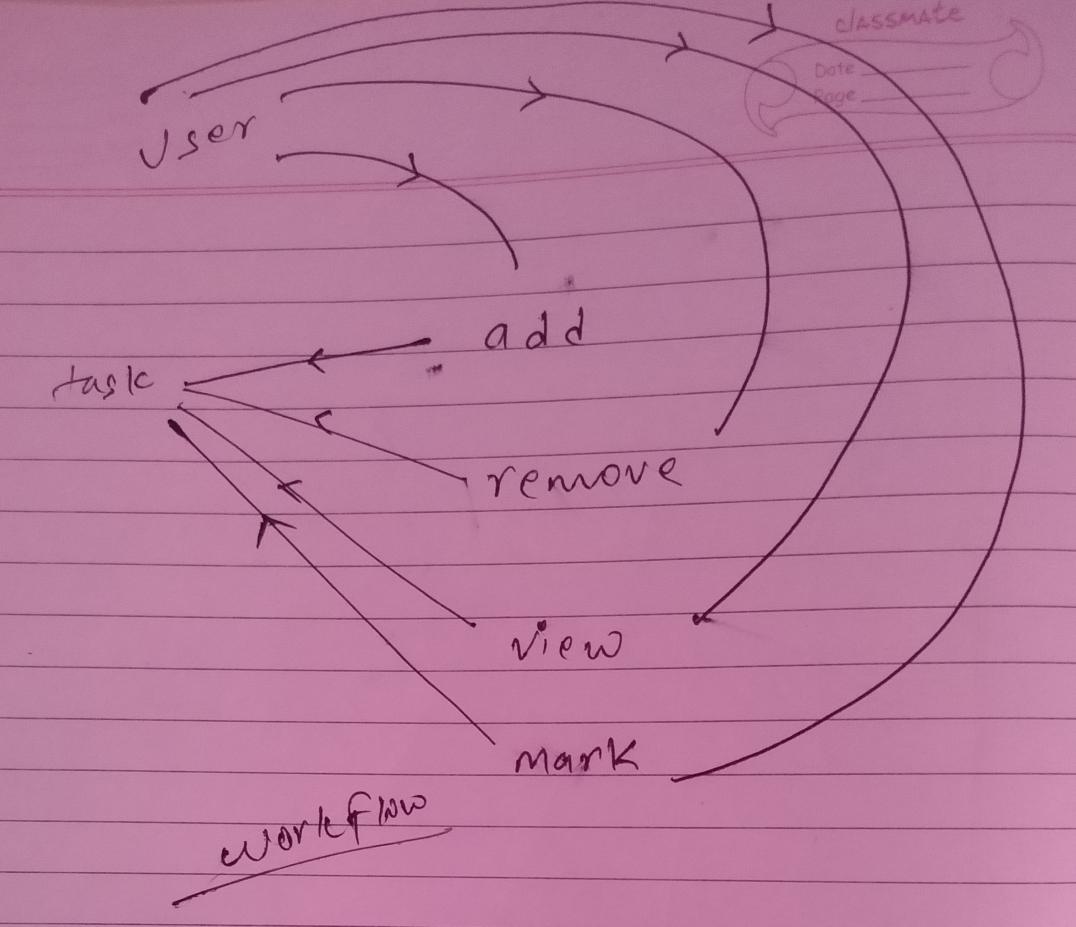 classmate
Date
Page
User
add
task
remove
view
mark
workflow